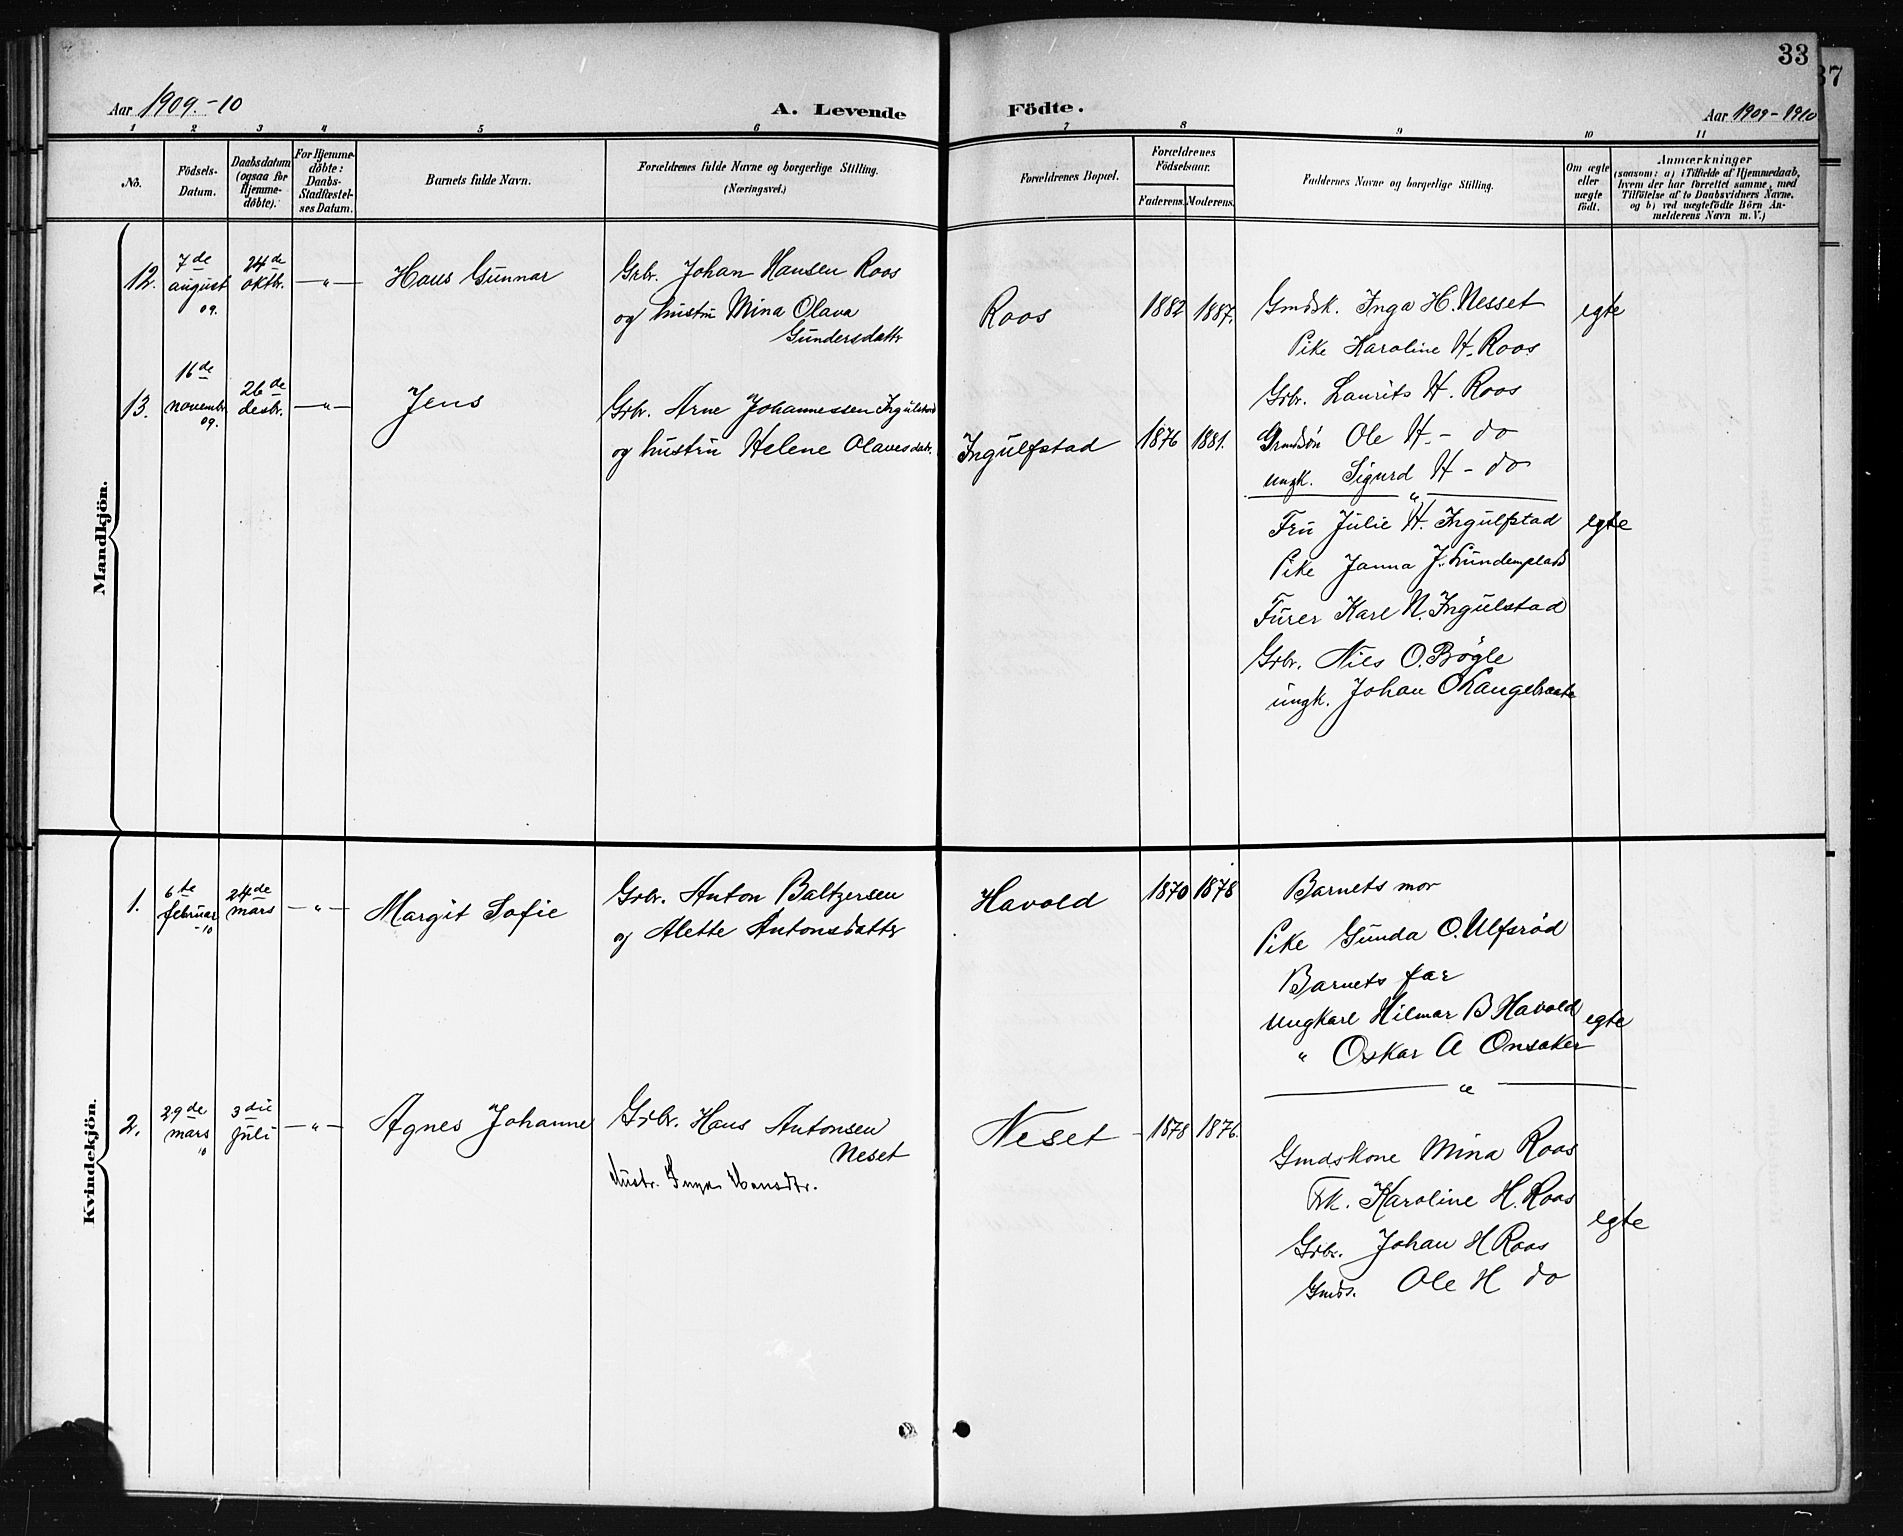 33
37
Aar 1909.-10
A. Levende
Födte.
Aar 1909-1910
1 2 3 4 5 6 7 8 9 10 11
No.
Födsels-
Datum.
Daabsdatum
(ogsaa for
Hjemme-
döbte).
For Hjemme-
döbte:
Daabs-
Stadfæstel-
ses Datum.
Barnets fulde Navn.
Forældrenes fulde Navne og borgerlige Stilling.
(Næringsvei.)
Forældrenes Bopæl.
Forældrenes
Födselsaar.
Faderens. Moderens.
Faddernes Navne og borgerlige Stilling.
Om ægte
eller
uægte
födt.
Anmærkninger
(saasom: a) i Tilfælde af Hjemmedaab,
hvem der har forrettet samme, med
Tilföielse af to Daabsvidners Navne.
og b) ved uægtefödte Börn An-
melderens Navn m. V.)
Mandkjön.
12.
7de
august
09.
24de
oktbr.
—"—
Hans Gunnar
Grbr. Johan Hansen Roos
og hustru Mina Olava
Gundersdattr
Roos
1882
1887.
Gmdsk. Inga H. Nesset
Pike Karoline H. Roos
Grbr. Laurits H. Roos
Grmdsøn Ole H. - do
ungk. Sigurd H - do
egte
—"—
13.
16de
novembr.
09.
26de
desbr.
—"—
Jens
Grbr. Arne Johannessen Ingulstad
og hustru Helene Olavesdatr.
Ingulfstad
1876
1881.
Fru Julie H. Ingulfstad
Pike Janna J. Lundemplads
Furer Karl N. Ingulstad
Grbr. Nils O. Bøgle
ungk. Johan O Langebraate
egte
Kvindekjön.
1.
6te
februar
-10
24de
mars
—"—
Margit Sofie
Grbr. Anton Baltzersen
og Alette Antonsdattr
Havold
1870
1878
Barnets mor
Pike Gunda O. Ulfsrød
Barnets far
Ungkarl Hilmar B Havold
" Oskar A Onsaker
egte
—"—
2.
29de
mars
10
3die
juli
—"—
Agnes Johanne
Grbr. Hans Antonsen
Neset
Hustr. Inga Hansdtr.
Neset
1878
1876.
Gmdskone Mina Roos
Frk. Karoline H. Roos
Grbr. Johan H Roos
Gmds. Ole H do
egte